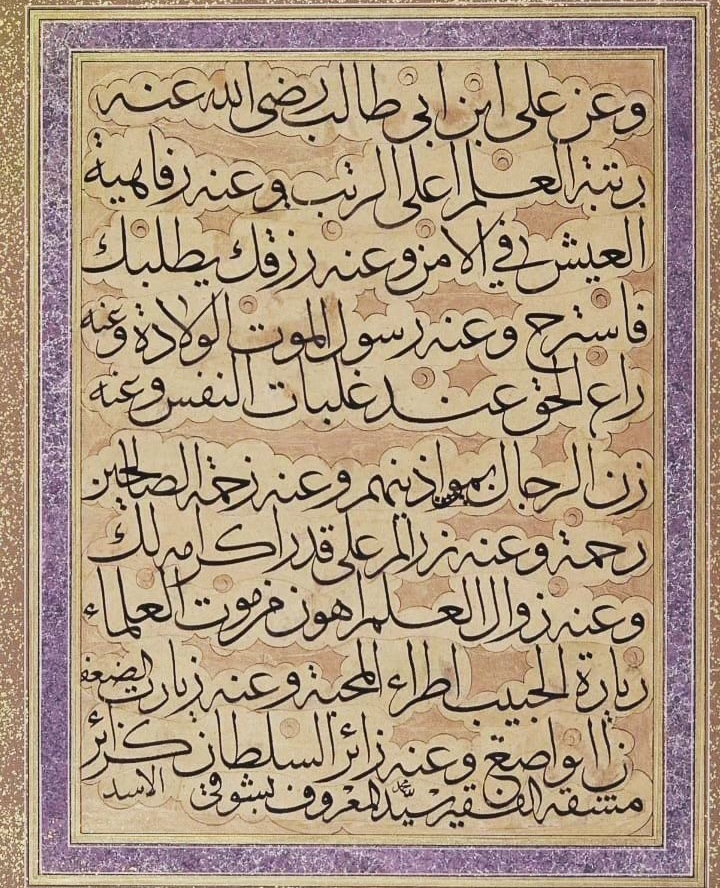 وعن علي ابن ابي طالب رضي الله عنه
رتبة العلم اعلى الرتب وعنه رفاهية
العيش في الامن وعنه رزقك يطلبك
فاسترح وعنه رسول الموت الولادة وعنه
راع الحق عند غلبات النفس وعنه
زن الرجال بموازينهم وعنه زحمة الصالحين
رحمة وعنه زر المرء على قدر اكرامه لك
وعنه زوال العلم اهون من موت العلماء
زيارة الحبيب اطراء المحبة وعنه زيارت الضعفا
من التواضع وعنه زائر السلطان كزائر
الاسد مشقه الفقير سيد محمد المعروف بشوقي